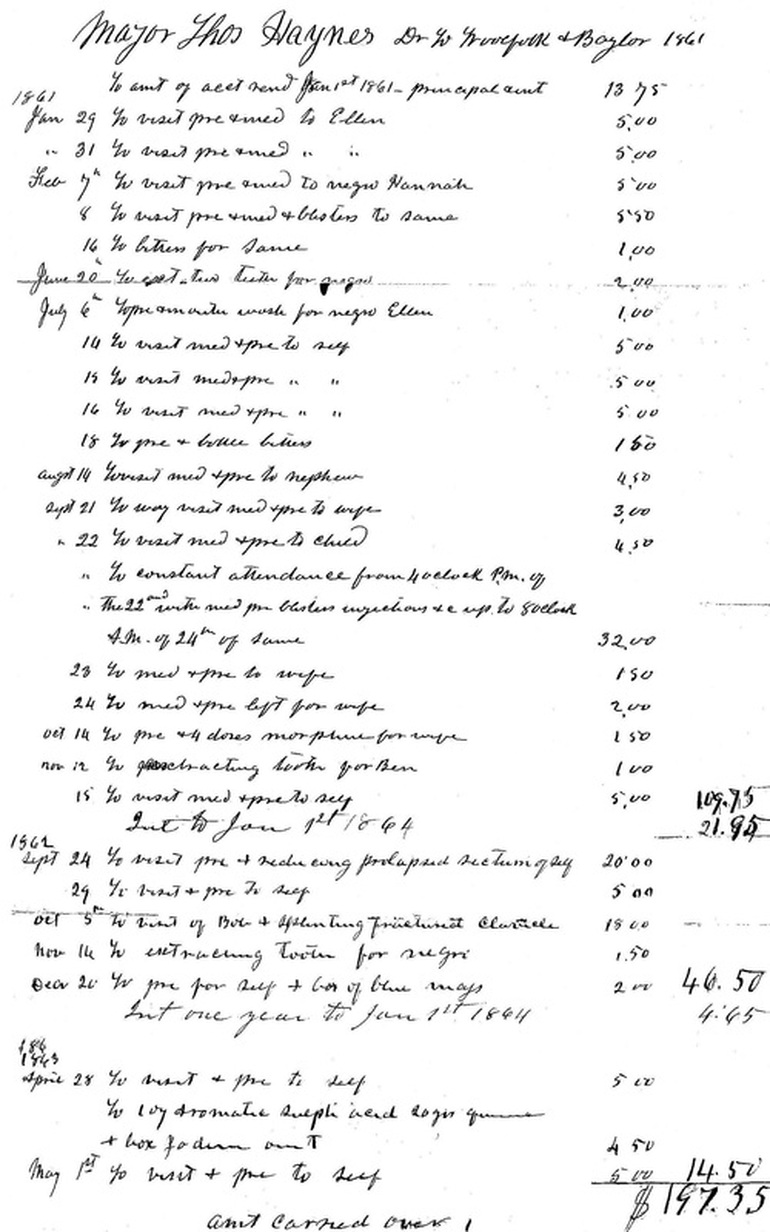 Major Thos Haynes Dr to Woolfolk & Baylor 1861
1861 To amt of acct rend Jan 1st 1861 - principal amt 13 75
Jan 29 To visit pre & med to Ellen 5.00
" 31 To visit pre & med " " 5.00
Feb 7th To visit pre & med to negro Hannah 5.00
8 To visit pre & med & blisters to same 5.50
16 To bitters for same 1.00
June 20th To ext. two teeth for negro 2.00
July 6th To pre & mouth wash for negro Ellen 1.00
14 To visit med & pre to self 5 00
15 To visit med & pre " " 5 00
16 To visit med & pre " " 5 00
18 To pre & bottle bitters 1 50
augst 14 To visit med & pre to nephew 4.50
sept 21 To way visit med & pre to wife 3,00
" 22 To visit med & pre to child 4.50
" To constant attendance from 4 oclock P.M. of
" the 22nd with med pre blisters injections &c up to 8 oclock
A.M. of 24th of same 32.00
23 To med & pre to wife 1 50
24 To med & pre left for wife 2,00
oct 14 To pre & 4 doses morphine for wife 1 50
nov 12 To extracting tooth for Ben 1 00
15 To visit med & pre to self 5,00 109.75
Int to Jan 1st 1864 21.95
1862
Sept 24 To visit pre & reducing prolapsed rectum of self 20.00
29 To visit & pre to self 5 00
oct 5th To visit of Bob & splinting fractured clavicle 18 00
nov 14 To extracting tooth for negro 1.50
Decr 20 To pre for self & box of blue mass 2 00 46.50
Int one year to Jan 1st 1864 4.65
186
1863
April 28 To visit & pre to self 5 00
To 1 oz aromatic sulph acid 20 grs quinine
& box Iodine oint 4 50
May 1st To visit & pre to self 5 00 14.50
$197.35
amt carried over